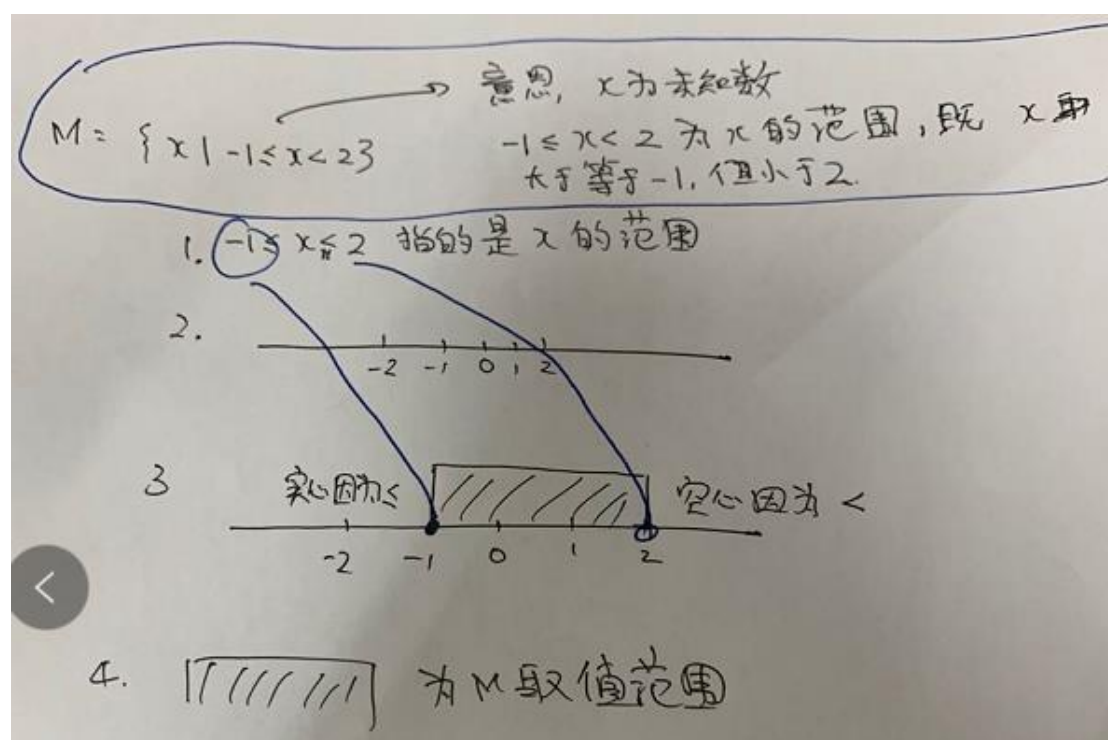 意思, x为未知数
M = {x | -1≤x<2}
-1≤x<2 为x的范围, 既 x取
大于等于-1, 但小于2.
1. -1≤ x≤2 指的是x的范围
2.
-2 -1 0 1 2
3 实心因为≤ 空心因为<
-2 -1 0 1 2
4. 为M取值范围